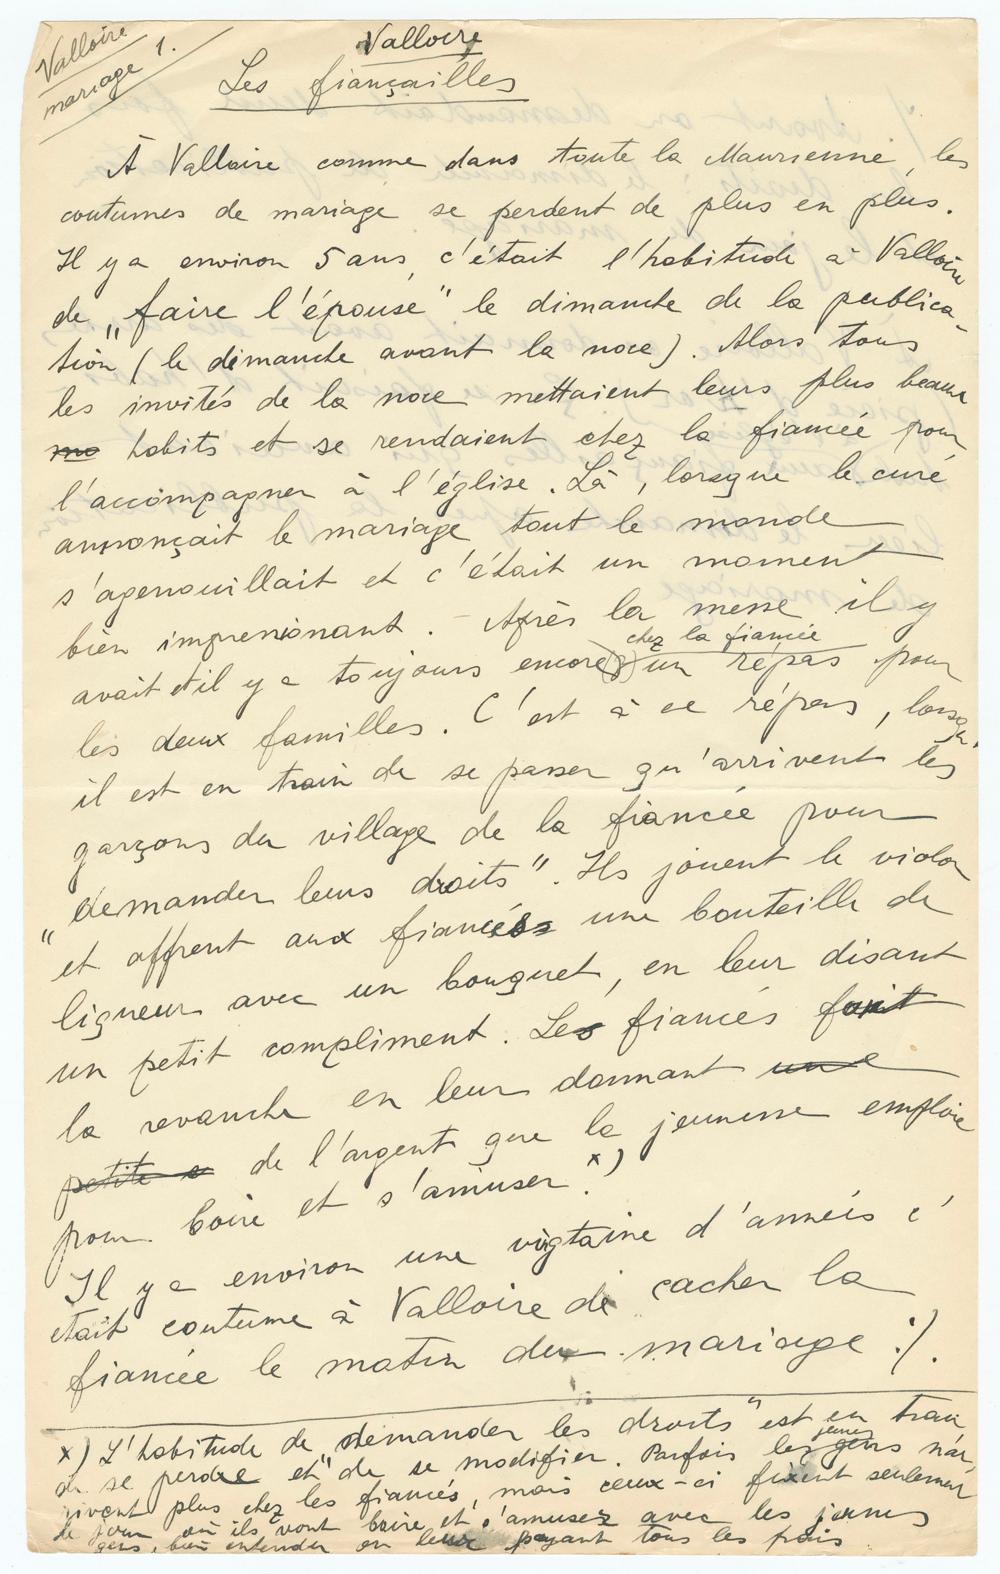 Valloire
mariage 1.
Valloire
Les fiançailles
À Valloire comme dans toute la Maurienne, les
coutumes de mariage se perdent de plus en plus.
Il y a environ 5 ans, c'était l'habitude à Valloire
de „faire l'épouse" le dimanche de la publica-
tion (le dimanche avant la noce). Alors tous
les invités de la noce mettaient leurs plus beaux
habits et se rendaient chez la fiancée pour
l'accompagner à l'église. Là, lorsque le curé
annonçait le mariage tout le monde
s'agenouillait et c'était un moment
bien impressionnant. – Après la messe il y
chez la fiancée
avait et il y a toujours encore un répas pour
les deux familles. C'est à ce répas, lorsqu'
il est en train de se passer qu'arrivent les
garçons du village de la fiancée pour
"demander leurs droits". Ils jouent le violon
et offrent aux fiancés une bouteille de
liqueur avec un bouquet, en leur disant
un petit compliment. Les fiancés font
la revanche en leur donnant une
petite de l'argent que la jeunesse emploie
pour boire et s'amuser. x)
Il y a environ une vigtaine d'années c'
était coutume à Valloire de cacher la
fiancée le matin du mariage :/.
x) L'habitude de „demander les droits" est en train
de se perdre et de se modifier. Parfois les jeunes gens n'ar-
rivent plus chez les fiancés, mais ceux-ci fixent seulement
le jour où ils vont boire et s'amusez avec les jeunes
gens, bien entendu en leur payant tous les frais